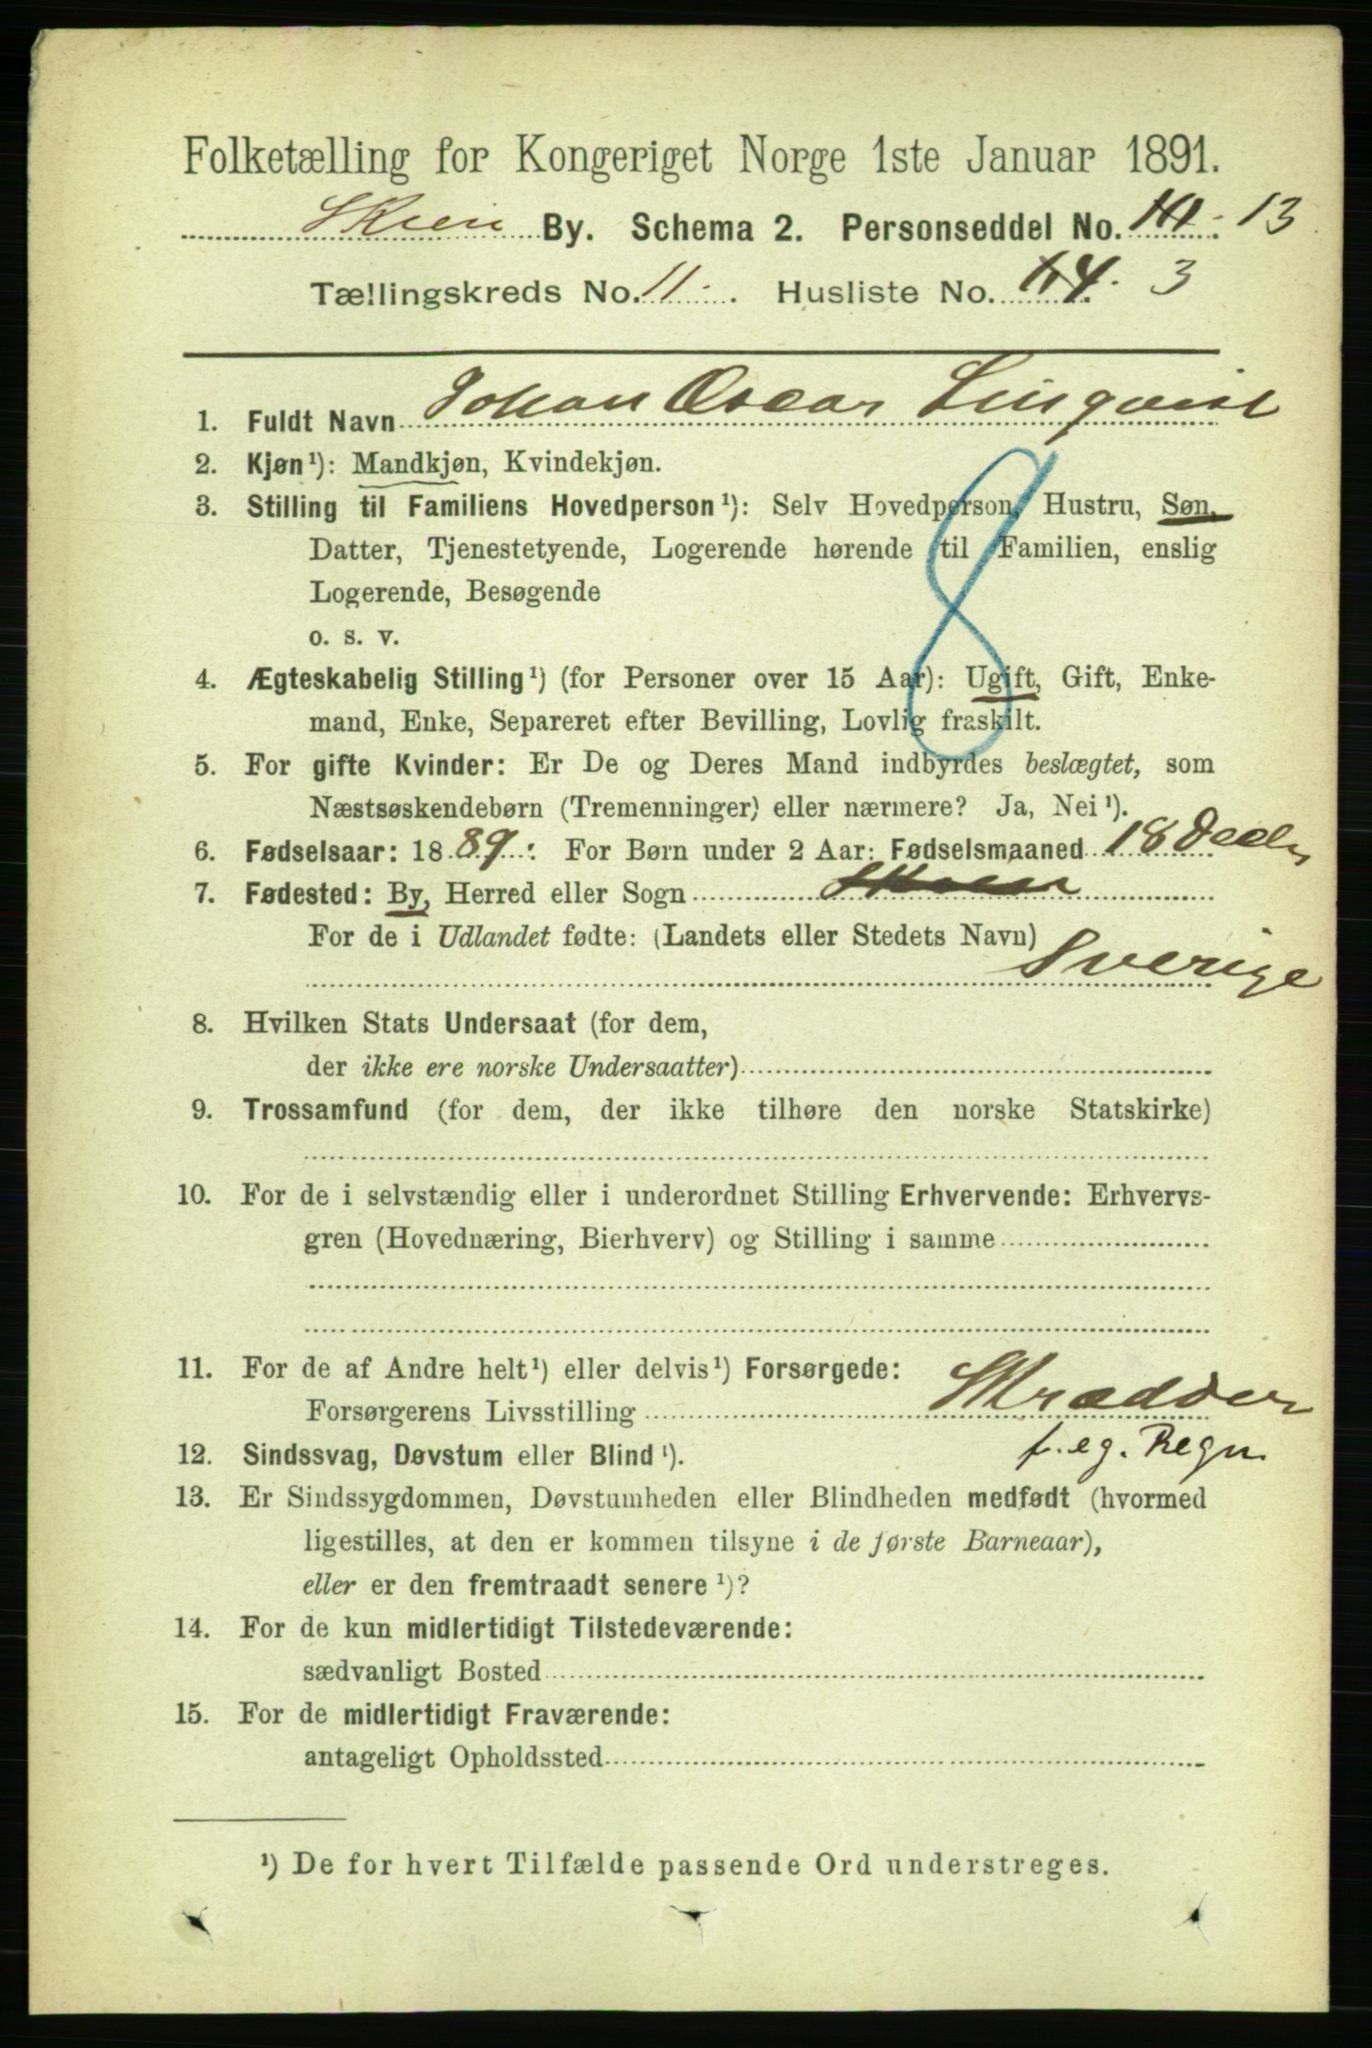 Folketælling for Kongeriget Norge 1ste Januar 1891.
Skien By. Schema 2. Personseddel No. 13
Tællingskreds No. 11. Husliste No. 14. 3
1. Fuldt Navn Johan Oscar Linqvist
2. Kjøn¹): Mandkjøn, Kvindekjøn.
3. Stilling til Familiens Hovedperson¹): Selv Hovedperson, Hustru, Søn,
Datter, Tjenestetyende, Logerende hørende til Familien, enslig
Logerende, Besøgende
o. s. v.
8
4. Ægteskabelig Stilling¹) (for Personer over 15 Aar): Ugift, Gift, Enke-
mand, Enke, Separeret efter Bevilling, Lovlig fraskilt.
5. For gifte Kvinder: Er De og Deres Mand indbyrdes beslægtet, som
Næstsøskendebørn (Tremenninger) eller nærmere? Ja, Nei¹).
6. Fødselsaar: 1889. For Børn under 2 Aar: Fødselsmaaned 18 Decbr
7. Fødested: By, Herred eller Sogn Skien
For de i Udlandet fødte: (Landets eller Stedets Navn)
Sverige
8. Hvilken Stats Undersaat (for dem,
der ikke ere norske Undersaatter)
9. Trossamfund (for dem, der ikke tilhøre den norske Statskirke)
10. For de i selvstændig eller i underordnet Stilling Erhvervende: Erhvervs-
gren (Hovednæring, Bierhverv) og Stilling i samme
11. For de af Andre helt¹) eller delvis¹) Forsørgede:
Forsørgerens Livsstilling Skrædder
f. eg. Regn.
12. Sindssvag, Døvstum eller Blind¹).
13. Er Sindssygdommen, Døvstumheden eller Blindheden medfødt (hvormed
ligestilles, at den er kommen tilsyne i de første Barneaar),
eller er den fremtraadt senere¹)?
14. For de kun midlertidigt Tilstedeværende:
sædvanligt Bosted
15. For de midlertidigt Fraværende:
antageligt Opholdssted
¹) De for hvert Tilfælde passende Ord understreges.